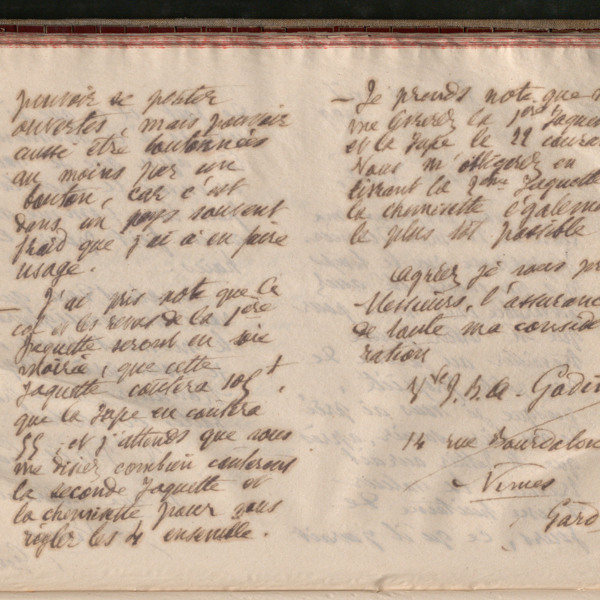 pouvoir se porter
ouvertes, mais pouvoir
aussi être boutonnées
au moins par un
bouton, car c'est
dans un pays souvent
froid que j'ai à en faire
usage.
— J'ai pris note que le
col et les revers de la 1ère
Jaquette seront en soie
moirée, que cette
Jaquette coutera
que la Jupe en coutera
55 et j'attends que vous
me disiez combien couteront
la seconde Jaquette et
la chemisette pour vous
régler les 4 ensemble.
— Je prends note que
me livrerez la 1ère Jaquet
et la Jupe le 22 couran
Vous m'obligerez en
livrant la 2ème Jaquette
la chemisette égaleme
le plus tôt possible
Agréez je vous pr
Messieurs, l'assuranc
de toute ma considé
ration
Vve J. B. A. Godin
14 rue Bourdalou
Nimes
Gard